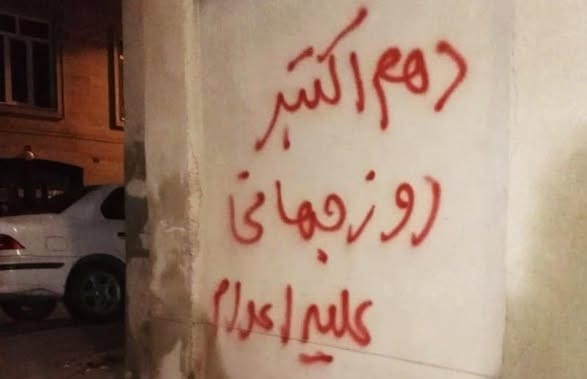 دهم اکتبر
روز جهانی
علیه اعدام